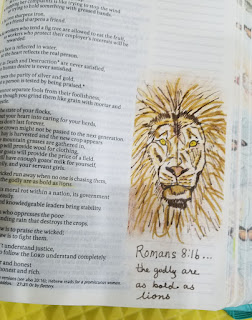 her complaints is like trying to stop the wind
trying to hold something with greased hands.
sharpens iron,
friend sharpens a friend.
workers who tend a fig tree are allowed to eat the fruit,
workers who protect their employer's interests will be
rewarded.
is reflected in water,
heart reflects the real person.
as Death and Destruction* are never satisfied,
human desire is never satisfied.
the purity of silver and gold,
a person is tested by being praised.*
separate fools from their foolishness,
though you grind them like grain with mortar and
pestle.
state of your flocks,
your heart into caring for your herds,
don't last forever,
crown might not be passed to the next generation.
is harvested and the new crop appears
mountain grasses are gathered in,
will provide wool for clothing,
goats will provide the price of a field.
have enough goats' milk for yourself,
and your servant girls.
wicked run away when no one is chasing them,
godly are as bold as lions.
moral rot within a nation, its government
easily.
and knowledgeable leaders bring stability.
who oppresses the poor
pounding rain that destroys the crops.
is to praise the wicked;
law is to fight them.
understand justice,
follow the LORD understand completely.
and honest
dishonest and rich.
Romans 8:16...
the godly are
as bold as
lions